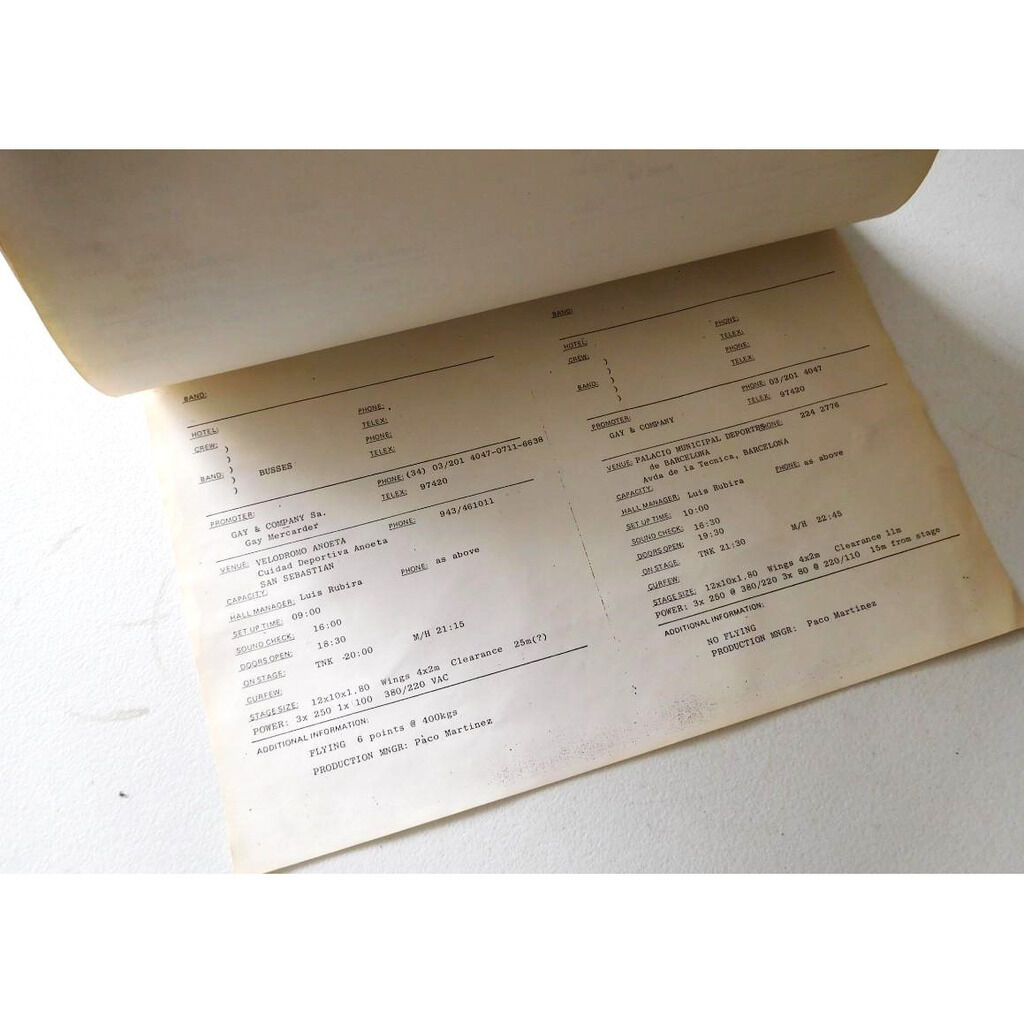 BAND:
HOTEL: PHONE:
TELEX:
CREW: ) PHONE:
) TELEX:
BAND: ) BUSSES
)
PROMOTER: PHONE: (34) 03/201 4047-0711-6638
GAY & COMPANY Sa. TELEX: 97420
Gay Mercarder
VENUE: VELODROMO ANOETA PHONE: 943/461011
Cuidad Deportiva Anoeta
SAN SEBASTIAN
CAPACITY:
HALL MANAGER: Luis Rubira PHONE: as above
SET UP TIME: 09:00
SOUND CHECK: 16:00
DOORS OPEN: 18:30
ON STAGE: TNK -20:00 M/H 21:15
CURFEW:
STAGE SIZE: 12x10x1.80 Wings 4x2m Clearance 25m(?)
POWER: 3x 250 1x 100 380/220 VAC
ADDITIONAL INFORMATION:
FLYING 6 points @ 400kgs
PRODUCTION MNGR: Paco Martinez
BAND:
HOTEL: PHONE:
TELEX:
CREW: ) PHONE:
) TELEX:
BAND: )
)
PROMOTER: PHONE: 03/201 4047
GAY & COMPANY TELEX: 97420
VENUE: PALACIO MUNICIPAL DEPORTES PHONE: 224 2776
de BARCELONA
Avda de la Tecnica, BARCELONA
CAPACITY:
HALL MANAGER: Luis Rubira PHONE: as above
SET UP TIME: 10:00
SOUND CHECK: 16:30
DOORS OPEN: 19:30
ON STAGE: TNK 21:30 M/H 22:45
CURFEW:
STAGE SIZE: 12x10x1.80 Wings 4x2m Clearance 11m
POWER: 3x 250 @ 380/220 3x 80 @ 220/110 15m from stage
ADDITIONAL INFORMATION:
NO FLYING
PRODUCTION MNGR: Paco Martinez